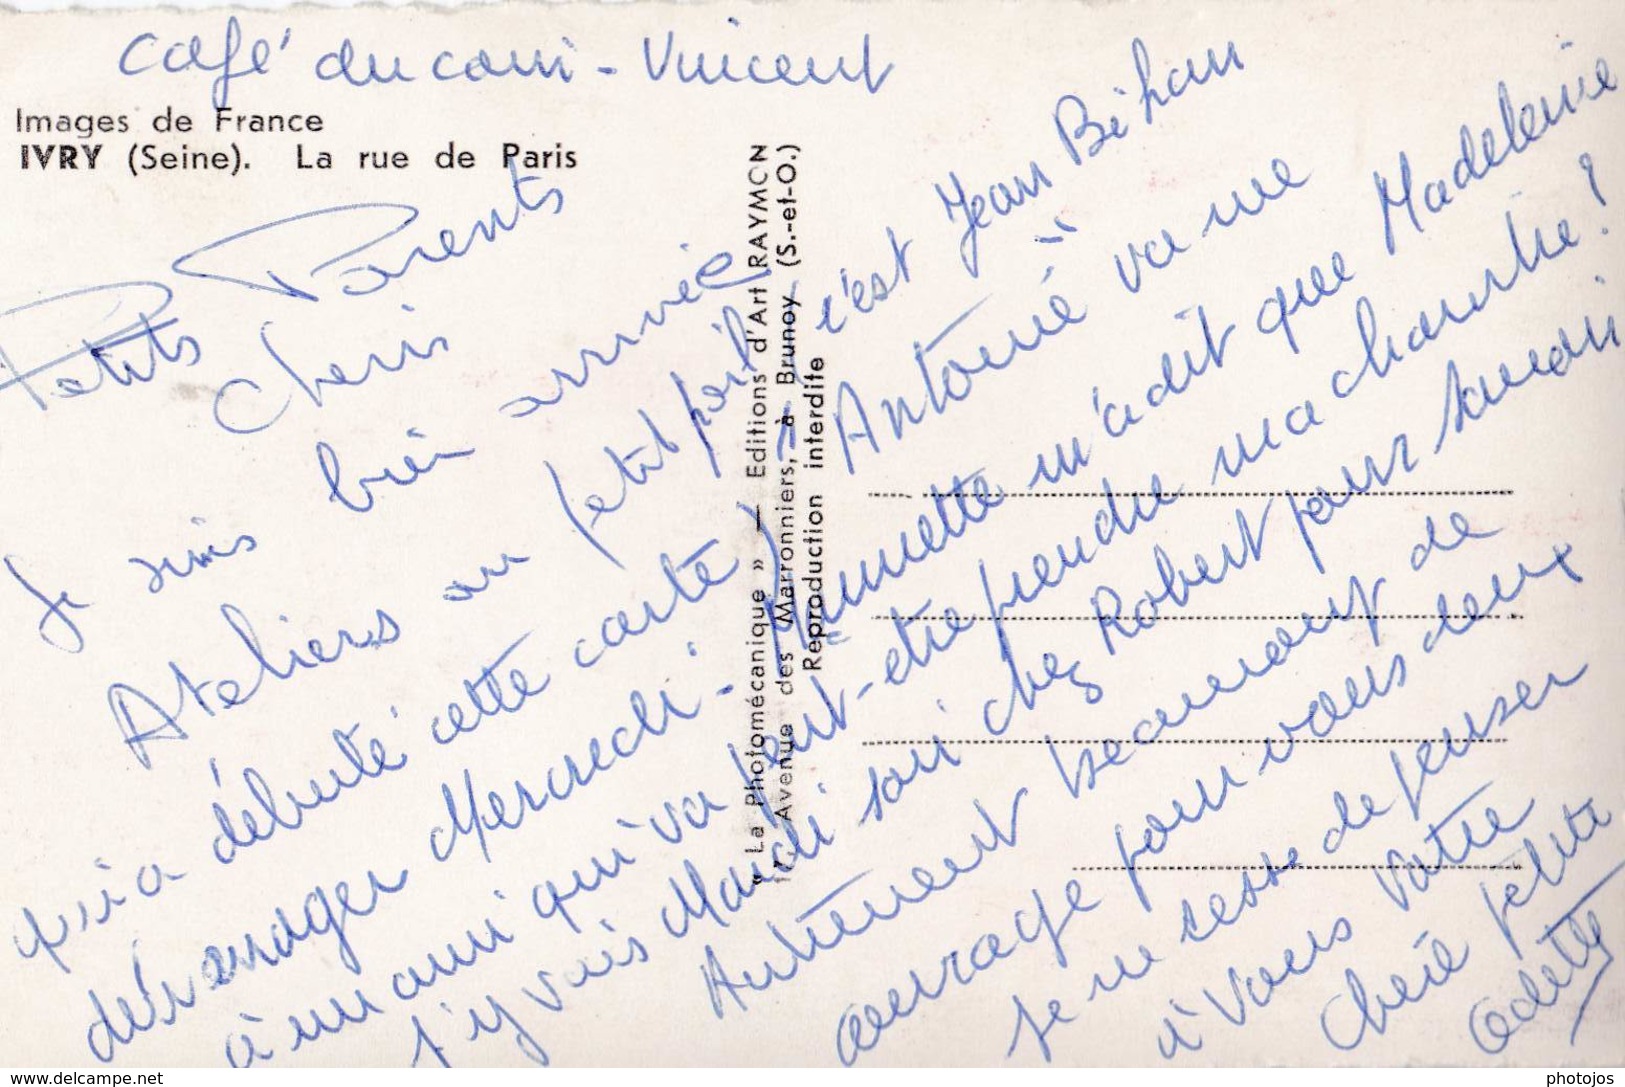 Café du coin - Vincent
Images de France
IVRY (Seine). La rue de Paris
Petits Parents
Cheris
Je suis bien arrivée
Ateliers au petit poil, c'est Jean Bihan
qui a débuté cette carte) Antoine va me
déménager Mercredi - Minouette m'a dit que Madeleine
à un ami qui va peut-être prendre ma chambre !
J'y vais Mardi soir chez Robert pour savoir
Autrement beaucoup de
ouvrage pour vous deux
Je ne cesse de penser
à Vous Votre
Cherie petite
Odette
« La Photomécanique » — Editions d'Art RAYMON
Avenue des Marronniers, à Brunoy (S.-et-O.)
Reproduction interdite
www.delcampe.net
photojos